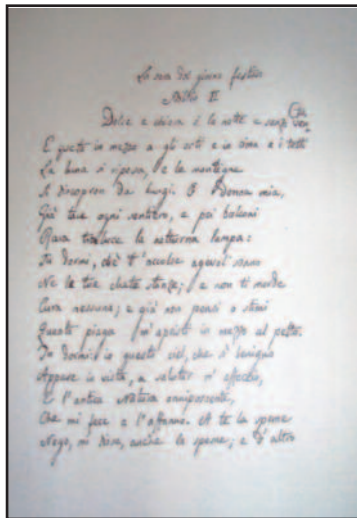 La sera del giorno festivo
Dolce e chiara è la notte e senza
E queta in mezzo a gli orti e in cima a i tetti
La luna si riposa, e le montagne
Si discopron da lungi. O Donna mia,
Già tace ogni sentiero, e pei balconi
Rara traluce la notturna lampa:
Tu dormi, chè t'accolse agevol sonno
Ne le tue chete stanze; e non ti morde
Cura nessuna; e già non pensi o stimi
Quanta piaga m'apristi in mezzo al petto.
Tu dormi: io questo ciel, che sì benigno
Appare in vista, a salutar m'affaccio,
E l'antica Natura onnipossente,
Che mi fece a l'affanno. A te la speme
Nego, mi disse, anche la speme; e d'altro